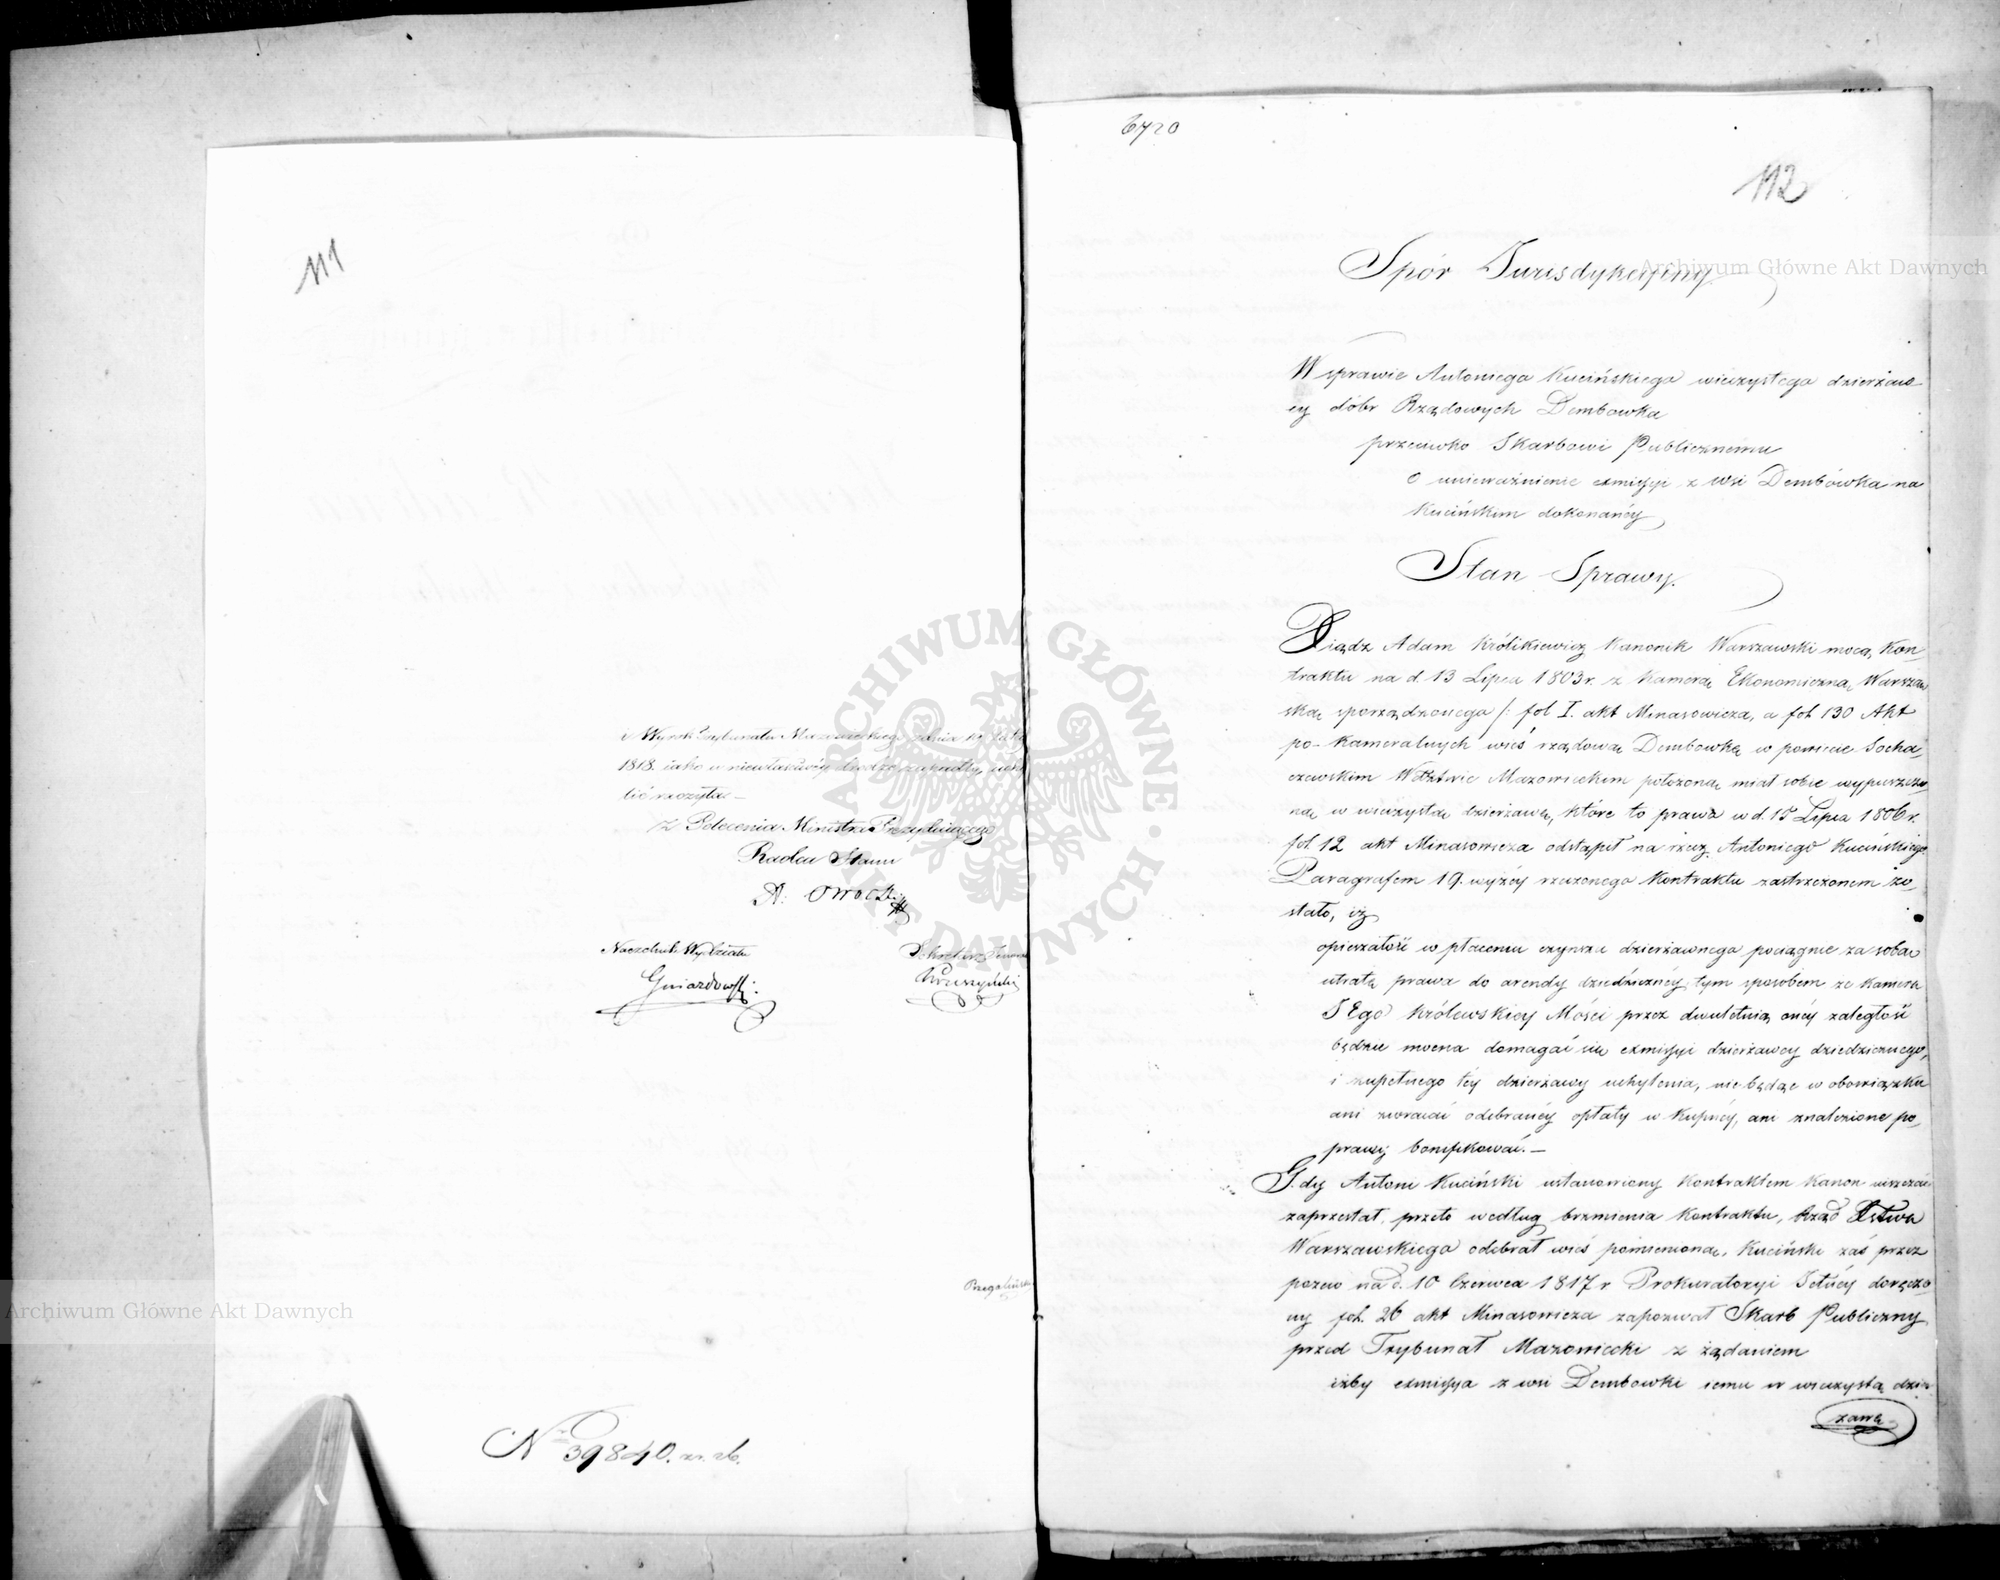 111
i Wyrok Trybunału Mazowieckiego z dnia 19 Lutego
1818. iako w niewłaściwéy drodze zapadły, uchy
lić raczyła —
z Polecenia Ministra Prezyduiącego
Radca Stanu
Naczelnik Wydziału
Gniazdowski
Sekretarz
No 39840.
6720
112
Spór Jurisdykcyiny
W sprawie Antoniego Kucińskiego wieczystego dzierżaw-
cy dóbr Rządowych Dembowka
przeciwko Skarbowi Publicznemu
O unieważnienie exmissyi z wsi Dembówka na
Kucińskim dokonanéy
Stan Sprawy.
Xiądz Adam Królikiewicz Kanonik Warszawski mocą Kon-
traktu na d. 13 Lipca 1803 r. z Kamerą Ekonomiczną Warszaw
ską sporządzonego /: fol I. akt Minasowicza, a fol 130 Akt
po-Kameralnych wieś rządową Dembowkę w powiecie Socha
czewskim Wdztwie Mazowieckim położoną miał sobie wypuszczo
ną w wieczystą dzierżawę, które to prawa w d. 15 Lipca 1806 r.
fol. 12 akt Minasowicza odstąpił na rzecz Antoniego Kucińskiego.
Paragrafem 19. wyżéy rzeczonego Kontraktu zastrzeżonem zo-
stało, iż
opieszałość w płaceniu czynszu dzierżawnego pociągnie za sobą
utratę prawa do arendy dziedzicznéy, tym sposobem że Kamera
JEgo Królewskiey Mości przez dwuletnią onéy zaległość
będzie mocna domagać się exmissyi dzierżawcy dziedzicznego,
i zupełnego téy dzierżawy uchylenia, nie będąc w obowiązku
ani zwracać odebranéy opłaty w kupnéy, ani znalezione po-
prawy bonifikować. —
Gdy Antoni Kuciński ustanowiony Kontraktem Kanon uiszczać
zaprzestał, przeto według brzmienia Kontraktu, Rząd Xstwa
Warszawskiego odebrał wieś pomienioną, Kuciński zaś przez
pozew na d. 10 Czerwca 1817 r Prokuratoryi Jlnéy doręczo
ny fol. 26 akt Minasowicza zapozwał Skarb Publiczny
przed Trybunał Mazowiecki z żądaniem
iżby exmissya z wsi Dembowki iemu w wieczystą dzier
żawę
Archiwum Główne Akt Dawnych
ARCHIWUM GŁÓWNE AKT DAWNYCH
Archiwum Główne Akt Dawnych